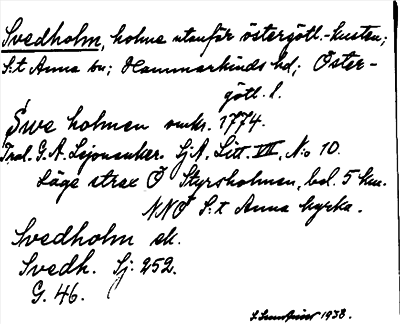 Svedholm, holme utanför östergötl.-kusten;
S:t Anna sn; Hammarkinds hd; Öster-
götl. l.
Swe holmen omkr. 1774.
Tral. G. A. Lejonanker. SjA. Litt. VII, N:o 10.
Läge strax Ö Styrsholmen, bel. 5 km.
NNÖ S:t Anna kyrka.
Svedholm ek.
Svedh. Sj: 252.
G. 46.
1938.